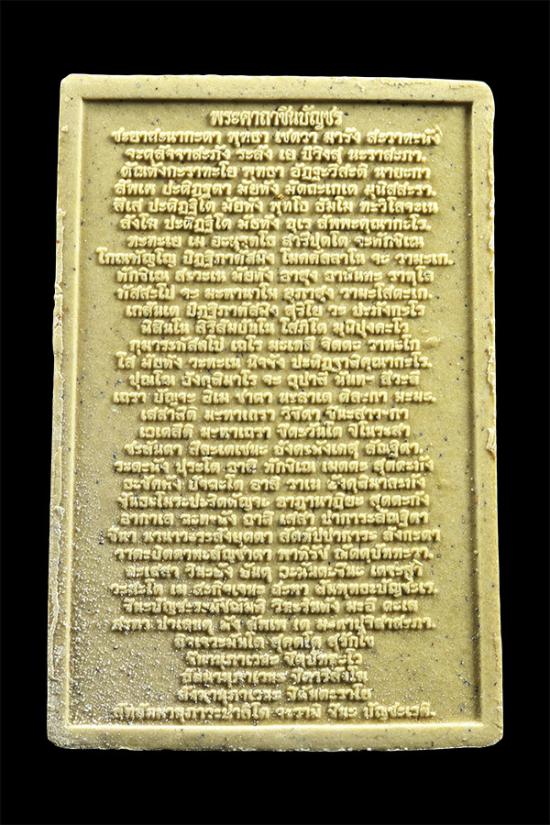 พระคาถาชินบัญชร
ชะยาสะนากะตา พุทธา เชตวา มารัง สะวาหะนัง
จะตุสัจจาสะภัง ระสัง เย ปิวิงสุ นะราสะภา.
ตัณหังกะราทะโย พุทธา อัฏฐะวีสะติ นายะกา
สัพเพ ปะติฏฐิตา มัยหัง มัตถะเกเต มุนิสสะรา.
สีเส ปะติฏฐิโต มัยหัง พุทโธ ธัมโม ทะวิโลจะเน
สังโฆ ปะติฏฐิโต มัยหัง อุเร สัพพะคุณากะโร.
หะทะเย เม อะนุรุทโธ สารีปุตโต จะทักขิเณ
โกณฑัญโญ ปิฏฐิภาคัสมิง โมคคัลลาโน จะ วามะเก.
ทักขิเณ สะวะเน มัยหัง อาสุง อานันทะ ราหุโล
กัสสะโป จะ มะหานาโม อุภาสุง วามะโสตะเก.
เกสันเต ปิฏฐิภาคัสมิง สุริโย วะ ปะภังกะโร
นิสินโน สิริสัมปันโน โสภิโต มุนิปุงคะโว
กุมาระกัสสะโป เถโร มะเหสี จิตตะ วาทะโก
โส มัยหัง วะทะเน นิจจัง ปะติฏฐาสิคุณากะโร.
ปุณโณ อังคุลิมาโร จะ อุปาลี นันทะ สีวะลี
เถรา ปัญจะ อิเม ชาตา นะลาเต ติละกา มะมะ.
เสสาสีติ มะหาเถรา วิชิตา ชินะสาวะกา
เอเตสีติ มะหาเถรา ชิตะวันโต ชิโนระสา
ชะลันตา สีละเตเชนะ อังคะมังเคสุ สัณฐิตา.
ระตะนัง ปุระโต อาสิ ทักขิเณ เมตตะ สุตตะกัง
ธะชัคคัง ปัจฉะโต อาสิ วาเม อังคุลิมาละกัง
ขันธะโมระปะริตตัญจะ อาฏานาฏิยะ สุตตะกัง
อากาเส ฉะทะนัง อาสิ เสสา ปาการะสัณฐิตา
ชินา นานาวะระสังยุตตา สัตตัปปาการะ ลังกะตา
วาตะปิตตาทะสัญชาตา พาหิรัช ฌัตตุปัททะวา.
อะเสสา วินะยัง ยันตุ อะนันตะชินะ เตชะสา
วะสะโต เม สะกิจเจนะ สะทา สัมพุทธะปัญชะเร.
ชินะปัญชะระมัชฌัมหิ วิหะรันตัง มะฮี ตะเล
สะทา ปาเลนตุ มัง สัพเพ เต มะหาปุริสาสะภา.
อิจเจวะมันโต สุคุตโต สุรักโข
ชินานุภาเวนะ ชิตุปัททะโว
ธัมมานุภาเวนะ ชิตาริสังโฆ
สังฆานุภาเวนะ ชิตันตะราโย
สัทธัมมานุภาวะปาลิโต จะรามิ ชินะ ปัญชะเรติ.